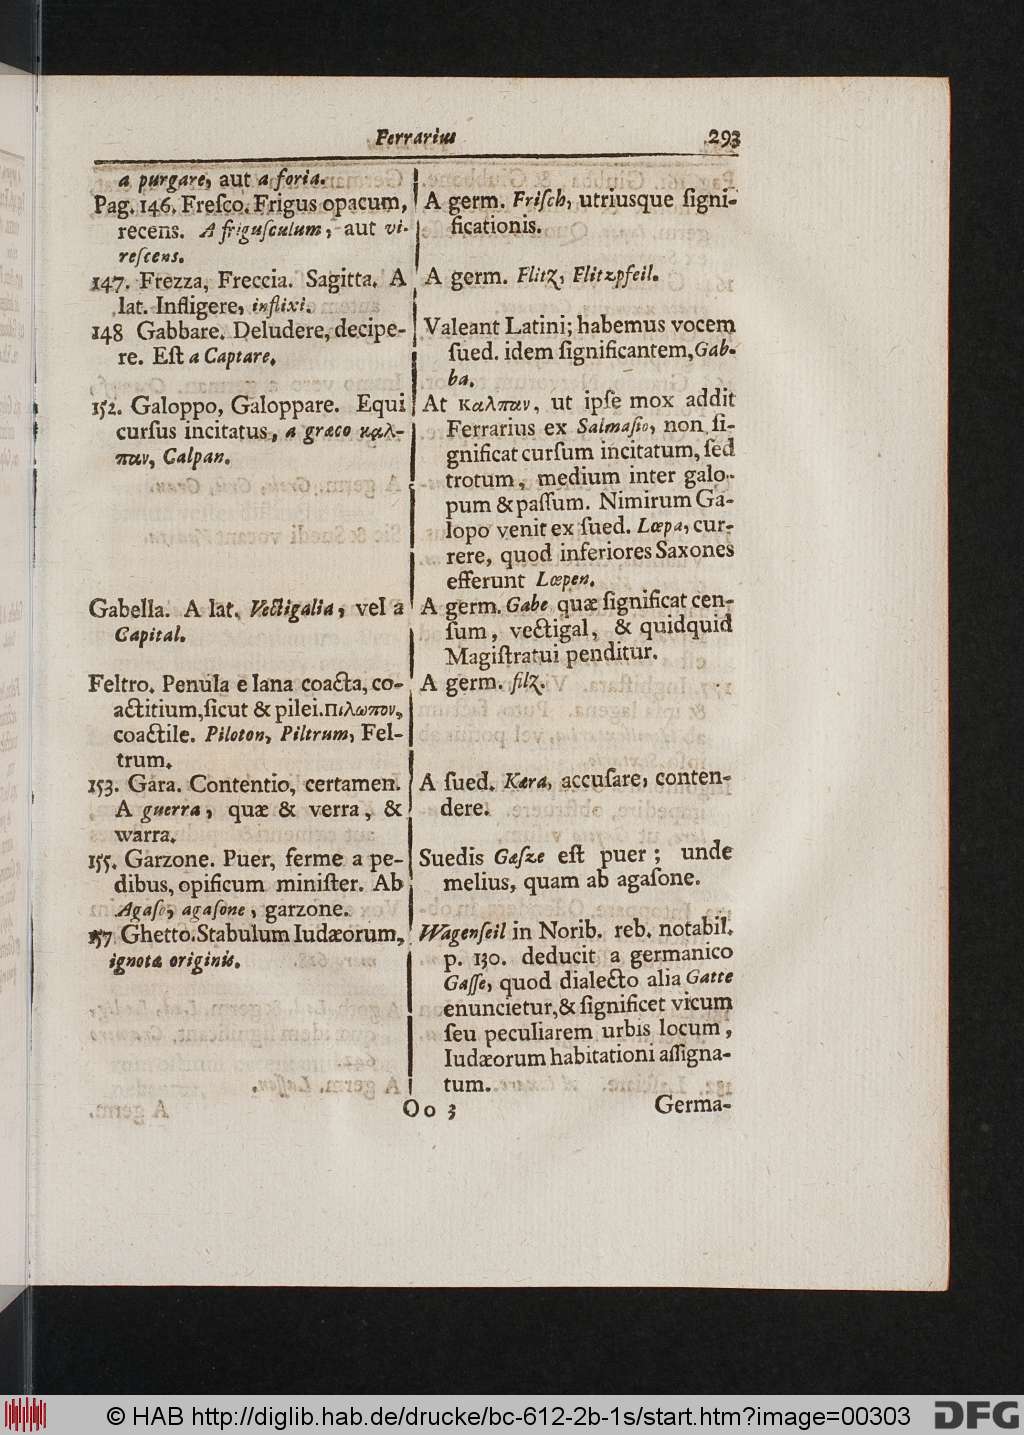 Ferrarius
293
a purgare, aut a foria.
Pag. 146. Freſco. Frigus opacum,
recens. A friguſculum, aut vi-
reſcens.
147. Frezza, Freccia. Sagitta. A
lat. Infligere, inflixi.
148 Gabbare. Deludere, decipe-
re. Eſt a Captare.
152. Galoppo, Galoppare. Equi
curſus incitatus, a græco καλ-
παν, Calpan.
Gabella. A lat. Vectigalia, vel a
Capital.
Feltro. Penula e lana coacta, co-
actitium, ſicut & pilei. Πιλωπον,
coactile. Piloton, Piltrum, Fel-
trum.
153. Gara. Contentio, certamen.
A guerra, quæ & verra, &
warra.
155. Garzone. Puer, ferme a pe-
dibus, opificum miniſter. Ab
Agaſo, agaſone, garzone.
157 Ghetto. Stabulum Iudæorum,
ignotæ originis.
A germ. Friſch, utriusque ſigni-
ficationis.
A germ. Flitz, Flitzpfeil.
Valeant Latini; habemus vocem
ſued. idem ſignificantem, Gab-
ba.
At καλπαν, ut ipſe mox addit
Ferrarius ex Salmaſio, non ſi-
gnificat curſum incitatum, ſed
trotum, medium inter galo-
pum & paſſum. Nimirum Ga-
lopo venit ex ſued. Lœpa, cur-
rere, quod inferiores Saxones
efferunt Lœpen.
A germ. Gabe quæ ſignificat cen-
ſum, vectigal, & quidquid
Magiſtratui penditur.
A germ. filz.
A ſued. Kæra, accuſare, conten-
dere.
Suedis Gaſze eſt puer; unde
melius, quam ab agaſone.
Wagenſeil in Norib. reb. notabil.
p. 130. deducit a germanico
Gaſſe, quod dialecto alia Gatte
enuncietur, & ſignificet vicum
ſeu peculiarem urbis locum,
Iudæorum habitationi aſſigna-
tum.
Oo 3
Germa-
© HAB http://diglib.hab.de/drucke/bc-612-2b-1s/start.htm?image=00303
DFG